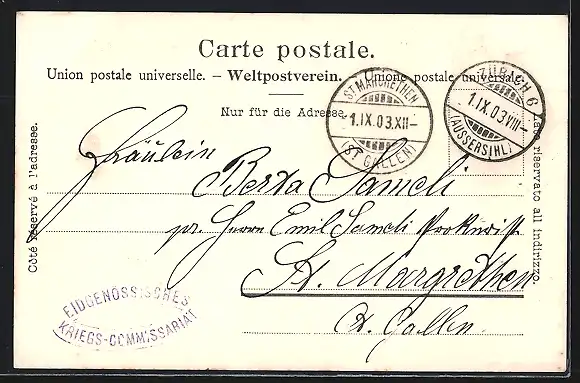 Carte postale.
Union postale universelle. – Weltpostverein. – Unione postale universale.
Nur für die Adresse.
Côté réservé à l'adresse.
Lato riservato all indirizzo.
ST. MARGRETHEN
1.IX.03.XII–
(ST. GALLEN)
ZÜRICH 6
1.IX.03.VIII–
(AUSSERSIHL)
Fräulein
Berta
pr. Herrn Emil Prokurist
St. Margrethen
St. Gallen
EIDGENÖSSISCHES
KRIEGS-COMMISSARIAT